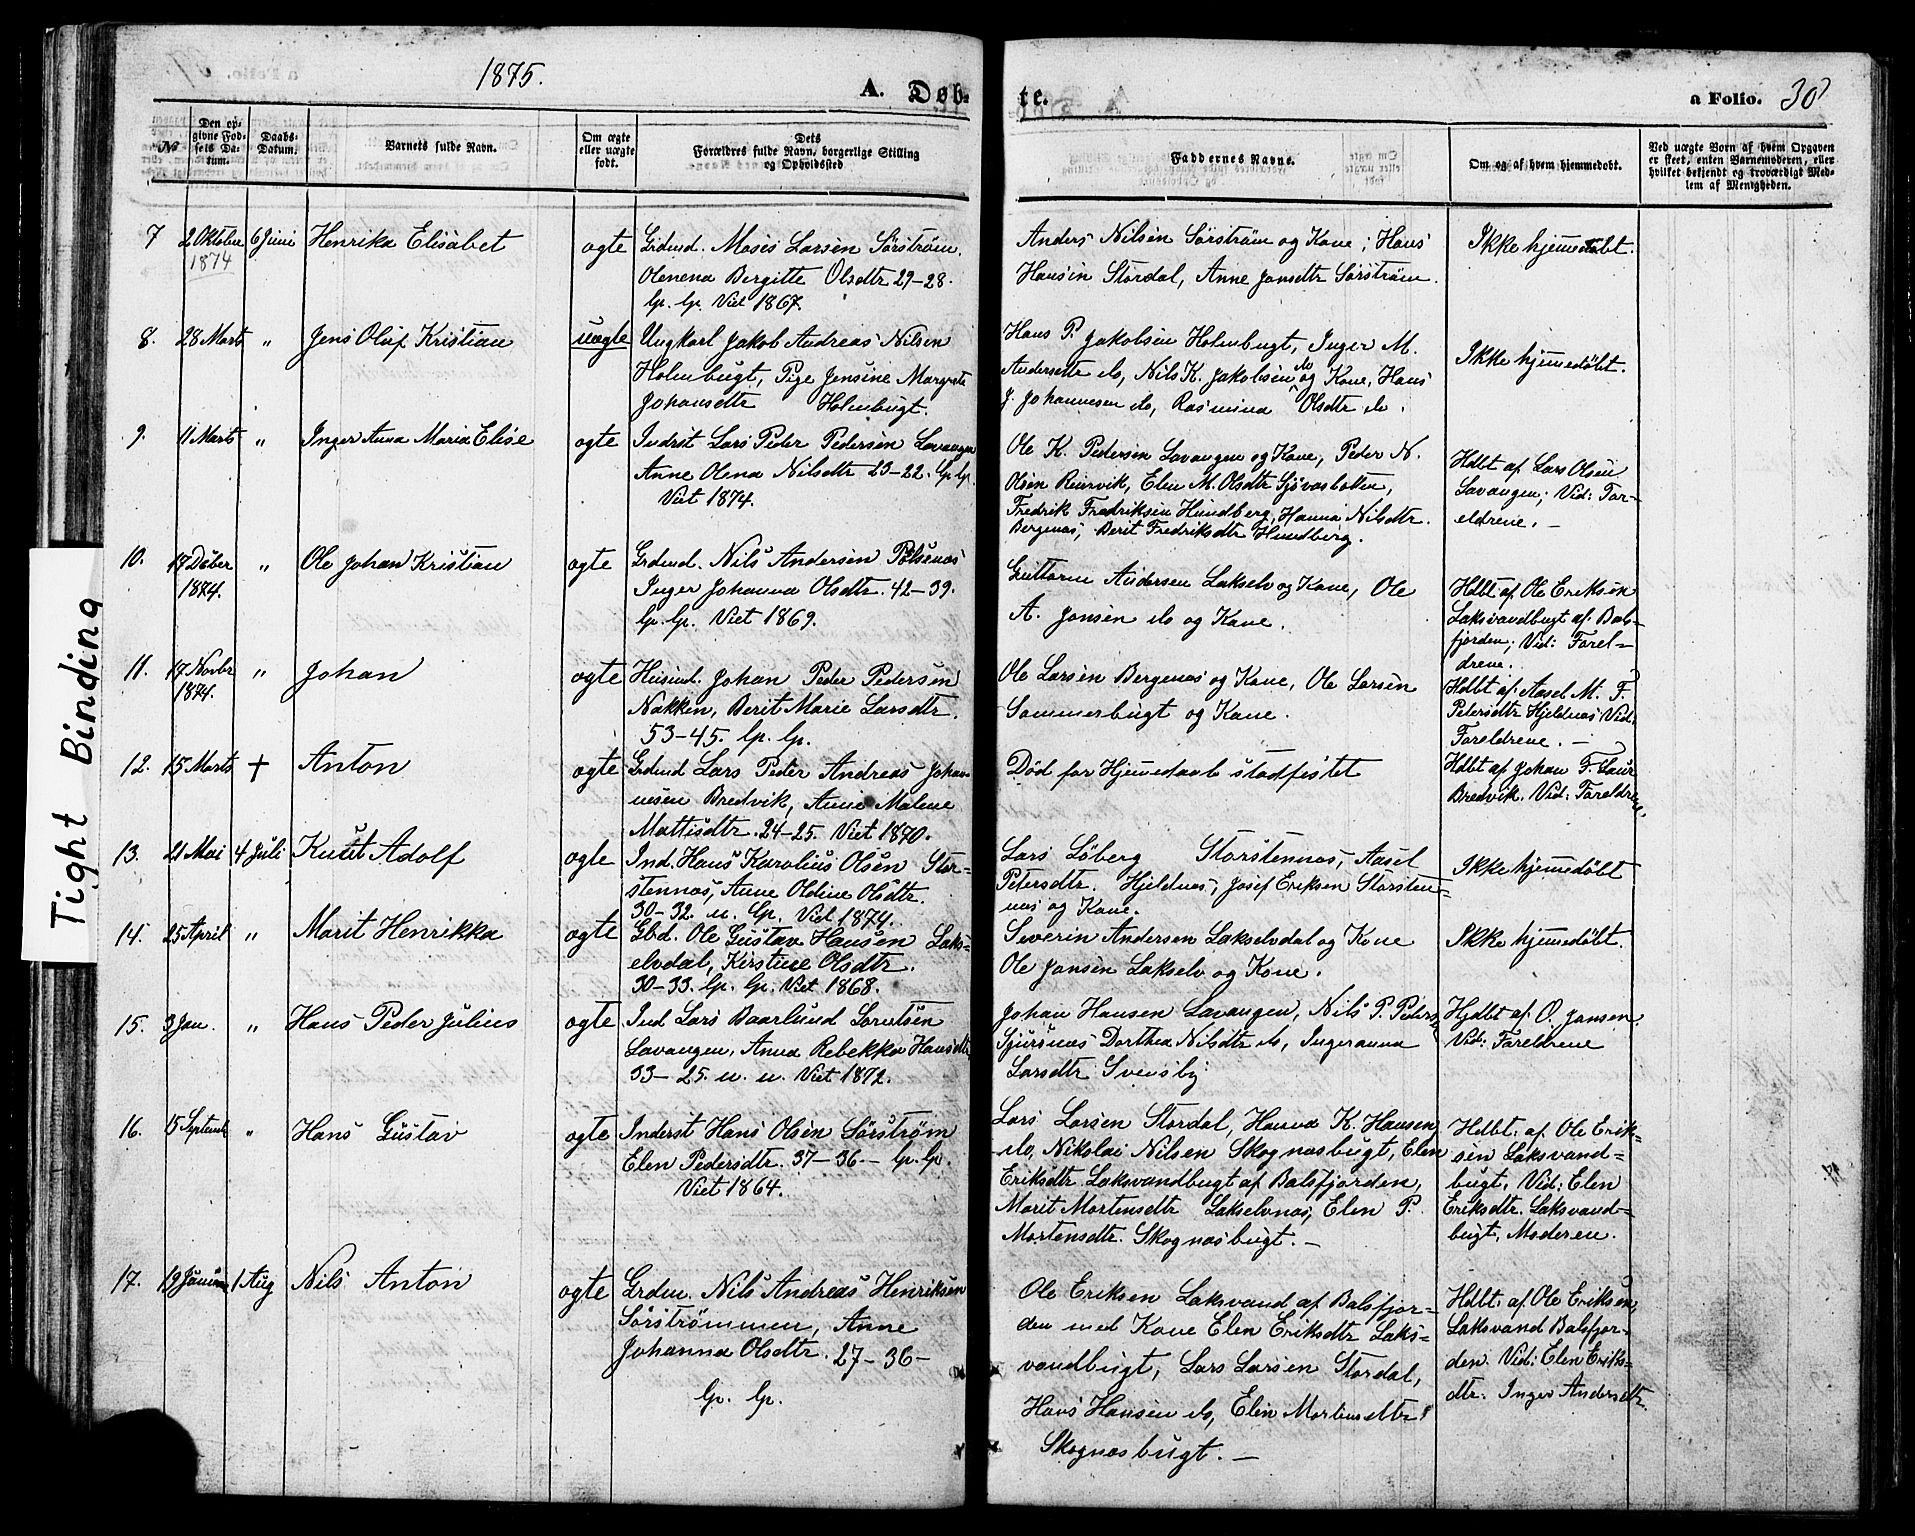 1875.
A. Døb-
te.
a Folio. 30
Tight Binding
No
Den op-
givne Fød-
sels Da-
tum.
Daabs-
Datum.
Barnets fulde Navn.
Om ægte
eller uægte
født.
Dets
Forældres fulde Navn, borgerlige Stilling
og Opholdssted
Faddernes Navne.
Om og af hvem hjemmedøbt.
Ved uægte Børn af hvem Opgaven
er skeet, enten Barnemoderen, eller
hvilket bekjendt og troværdigt Med-
lem af Menigheden.
7 2 Oktober 6 Juni Henrika Elisabet ogte Grdmd. Moses Larsen Sørstrøm.
1874
Olenena Bergitte Olsdtr 29-28.
lp. lp. Viet 1867.
Anders Nilsen Sørstrøm og Kone; Hans
Hansen Stordal, Anne Jonsdtr Sørstrøm.
Ikke hjemmedøbt.
8. 28 Marts " Jens Oluf Kristian uægte Ungkarl Jakob Andreas Nilsen
Holmbugt, Pige Jensine Margrete
Johansdtr Holmbugt.
Hans P. Jakobsen Holmbugt, Inger M.
Andersdtr do, Nils K. Jakobsen do og Kone, Hans
J. Johannesen do, Rasmina Olsdtr do.
Ikke hjemmedøbt.
9. 11 Marts " Inger Anna Maria Elise ogte Indrst Lars Peder Pedersen Lavangen
Anne Olena Nilsdtr 23-22. lp. lp.
Viet 1874.
Ole K. Pedersen Lavangen og Kone, Peder N.
Olsen Reinvik, Elen M. Olsdtr Gjøvasbotten,
Fredrik Fredriksen Hundberg, Hanna Nilsdtr.
Bergenas, Berit Fredriksdtr Hundberg.
Hdbt af Lars Olsen
Lavangen; Vid: For-
eldrene. -
10. 17 Dcber " Ole Johan Kristian ogte Grdmd. Nils Andersen Pølsenas
1874.
Inger Johanna Olsdtr. 42-39.
lp. lp. Viet 1869.
Guttorm Andersen Lakselv og Kone, Ole
A. Jonsen do og Kone.
Hdbt af Ole Eriksen
Laksvandbugt af Bals-
fjorden; Vid: Forel-
drene.
11. 17 Novbr " Johan ogte Husmd. Johan Peder Pedersen
1874.
Nakken, Berit Marie Larsdtr.
53-45. lp. lp.
Ole Larsen Bergenas og Kone, Ole Larsen
Sommerbugt og Kone.
Hdbt af Aasel M. F.
Petersdtr Hjeldnas Vid:
Foreldrene. -
12. 15 Marts + Anton ogte Grdmd Lars Peder Andreas Johan-
nesen Bredvik, Anne Malene
Mattisdtr. 24-25. Viet 1870.
Død før Hjemmedaab stadfestet
Hdbt af Johan F. Laur
Bredvik. Vid: Foreldrene.
13. 21 Mai 4 Juli Knut Adolf ogte Ind. Hans Karolius Olsen Stor-
stennas, Anne Oldine Olsdtr.
30-32. u. lp. Viet 1874.
Lars Løberg Storstennas, Aasel
Petersdtr. Hjeldnas, Josef Eriksen Storsten-
nas og Kone.
Ikke hjemmedøbt
14. 25 April " Marit Henrikka ogte Gbd. Ole Gustav Hansen Laks-
elvdal, Kirstine Olsdtr.
30-33. lp. lp. Viet 1868.
Severin Andersen Lakselvdal og Kone
Ole Jansen Lakselv og Kone.
Ikke hjemmedøbt.
15. 3 Jan. " Hans Peder Julius ogte Ind Lars Baarlund Lorntsen
Lavangen, Anna Rebekka Hansdtr
33-25. u. u. Viet 1872.
Johan Hansen Lavangen, Nils P. Peters
Sjursnas Dorthea Nilsdtr do, Ingeranna
Larsdtr Svensby
Hjdbt af O. Jansen.
Vid: Foreldrene
16. 15 Septemb " Hans Gustav ogte Inderst Hans Olsen Sørstrøm
Elen Pedersdtr. 37-36- lp. lp.
Viet 1864.
Lars Larsen Stordal, Hanna K. Hansen
do, Nikolai Nilsen Skognasbugt, Elen
Eriksdtr Laksvandbugt af Balsfjorden,
Marit Mortensdtr Lakselvnas, Elen P.
Mortensdtr. Skognasbugt. -
Hdbt. af Ole Erik-
sen Laksvand-
bugt. Vid: Elen
Eriksdtr. Laksvand-
bugt, Moderen.
17. 19 Januar 1 Aug Nils Anton ogte Grdm. Nils Andreas Henriksen
Sørstrømmen, Anne
Johanna Olsdtr. 27-36-
lp. lp.
Ole Eriksen Laksvand af Balsfjor-
den med Kone Elen Eriksdtr Laks-
vandbugt, Lars Larsen Stordal,
Hans Hansen do, Elen Mortensdtr
Skognasbugt. -
Hdbt. af Ole Eriksen
Laksvand Balsfjor-
den. Vid: Elen Eriks-
dtr. Inger Andersdtr.